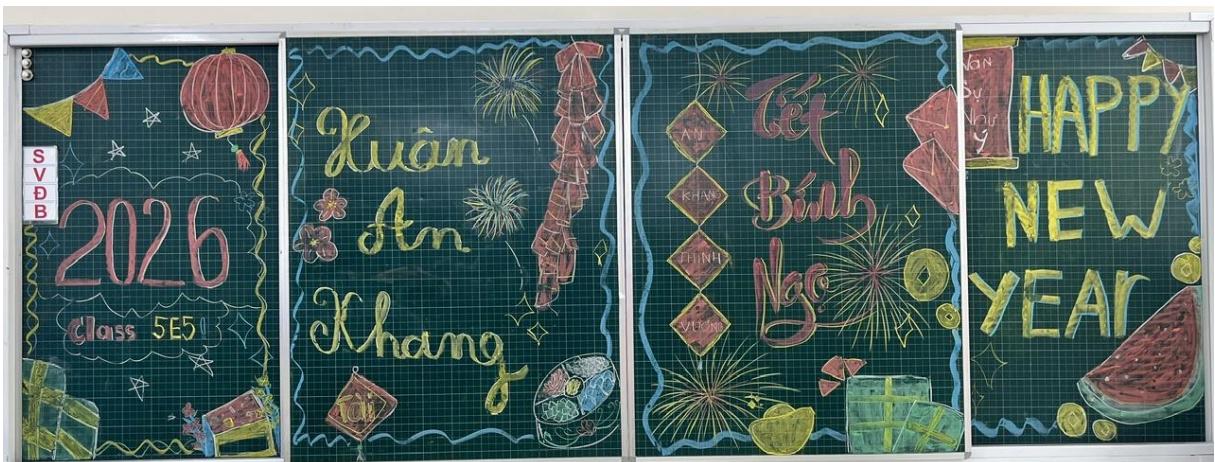 S
V
Đ
B
2026
Class 5E5
Xuân
An
Khang
Tài
AN
KHANG
THỊNH
VƯỢNG
Tết
Bính
Ngọ
Vạn
Sự
Như
ý
HAPPY
NEW
YEAr